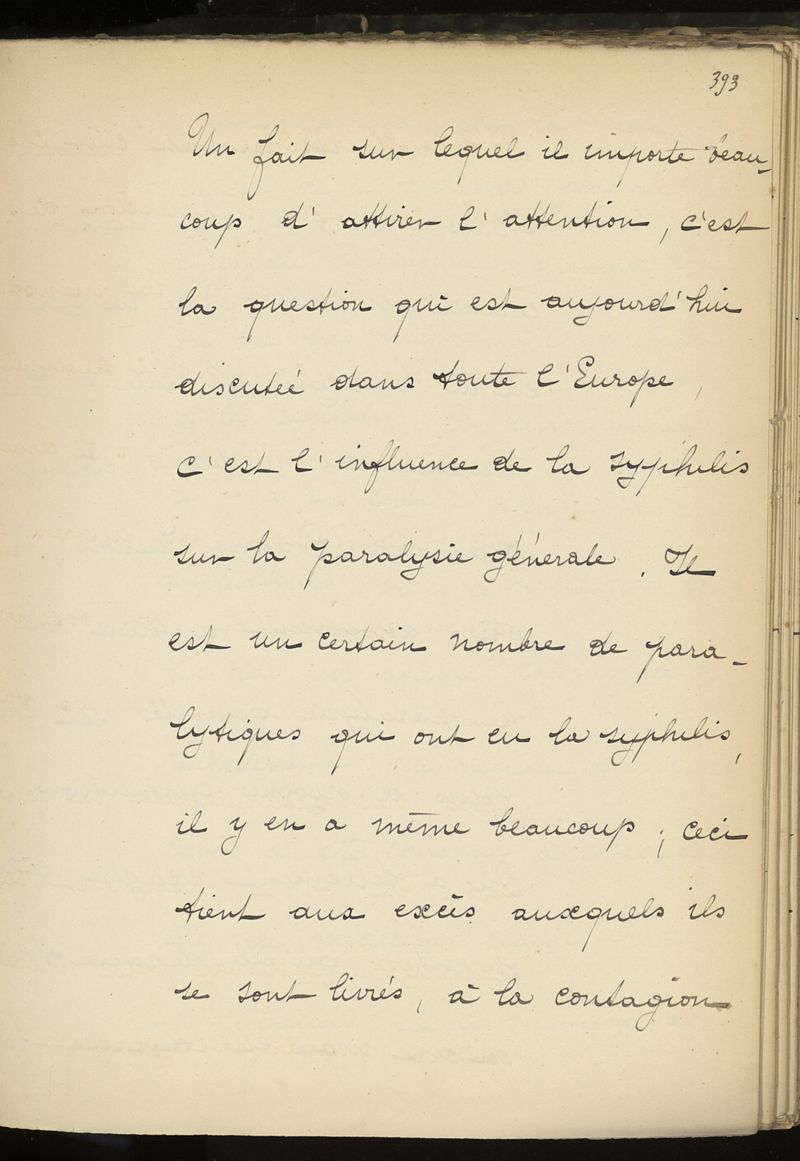 393
Un fait sur lequel il importe beau-
coup d'attirer l'attention, c'est
la question qui est aujourd'hui
discutée dans toute l'Europe,
c'est l'influence de la syphilis
sur la paralysie générale. Il
est un certain nombre de para-
lytiques qui ont eu la syphilis,
il y en a même beaucoup ; ceci
tient aux excès auxquels ils
se sont livrés, à la contagion